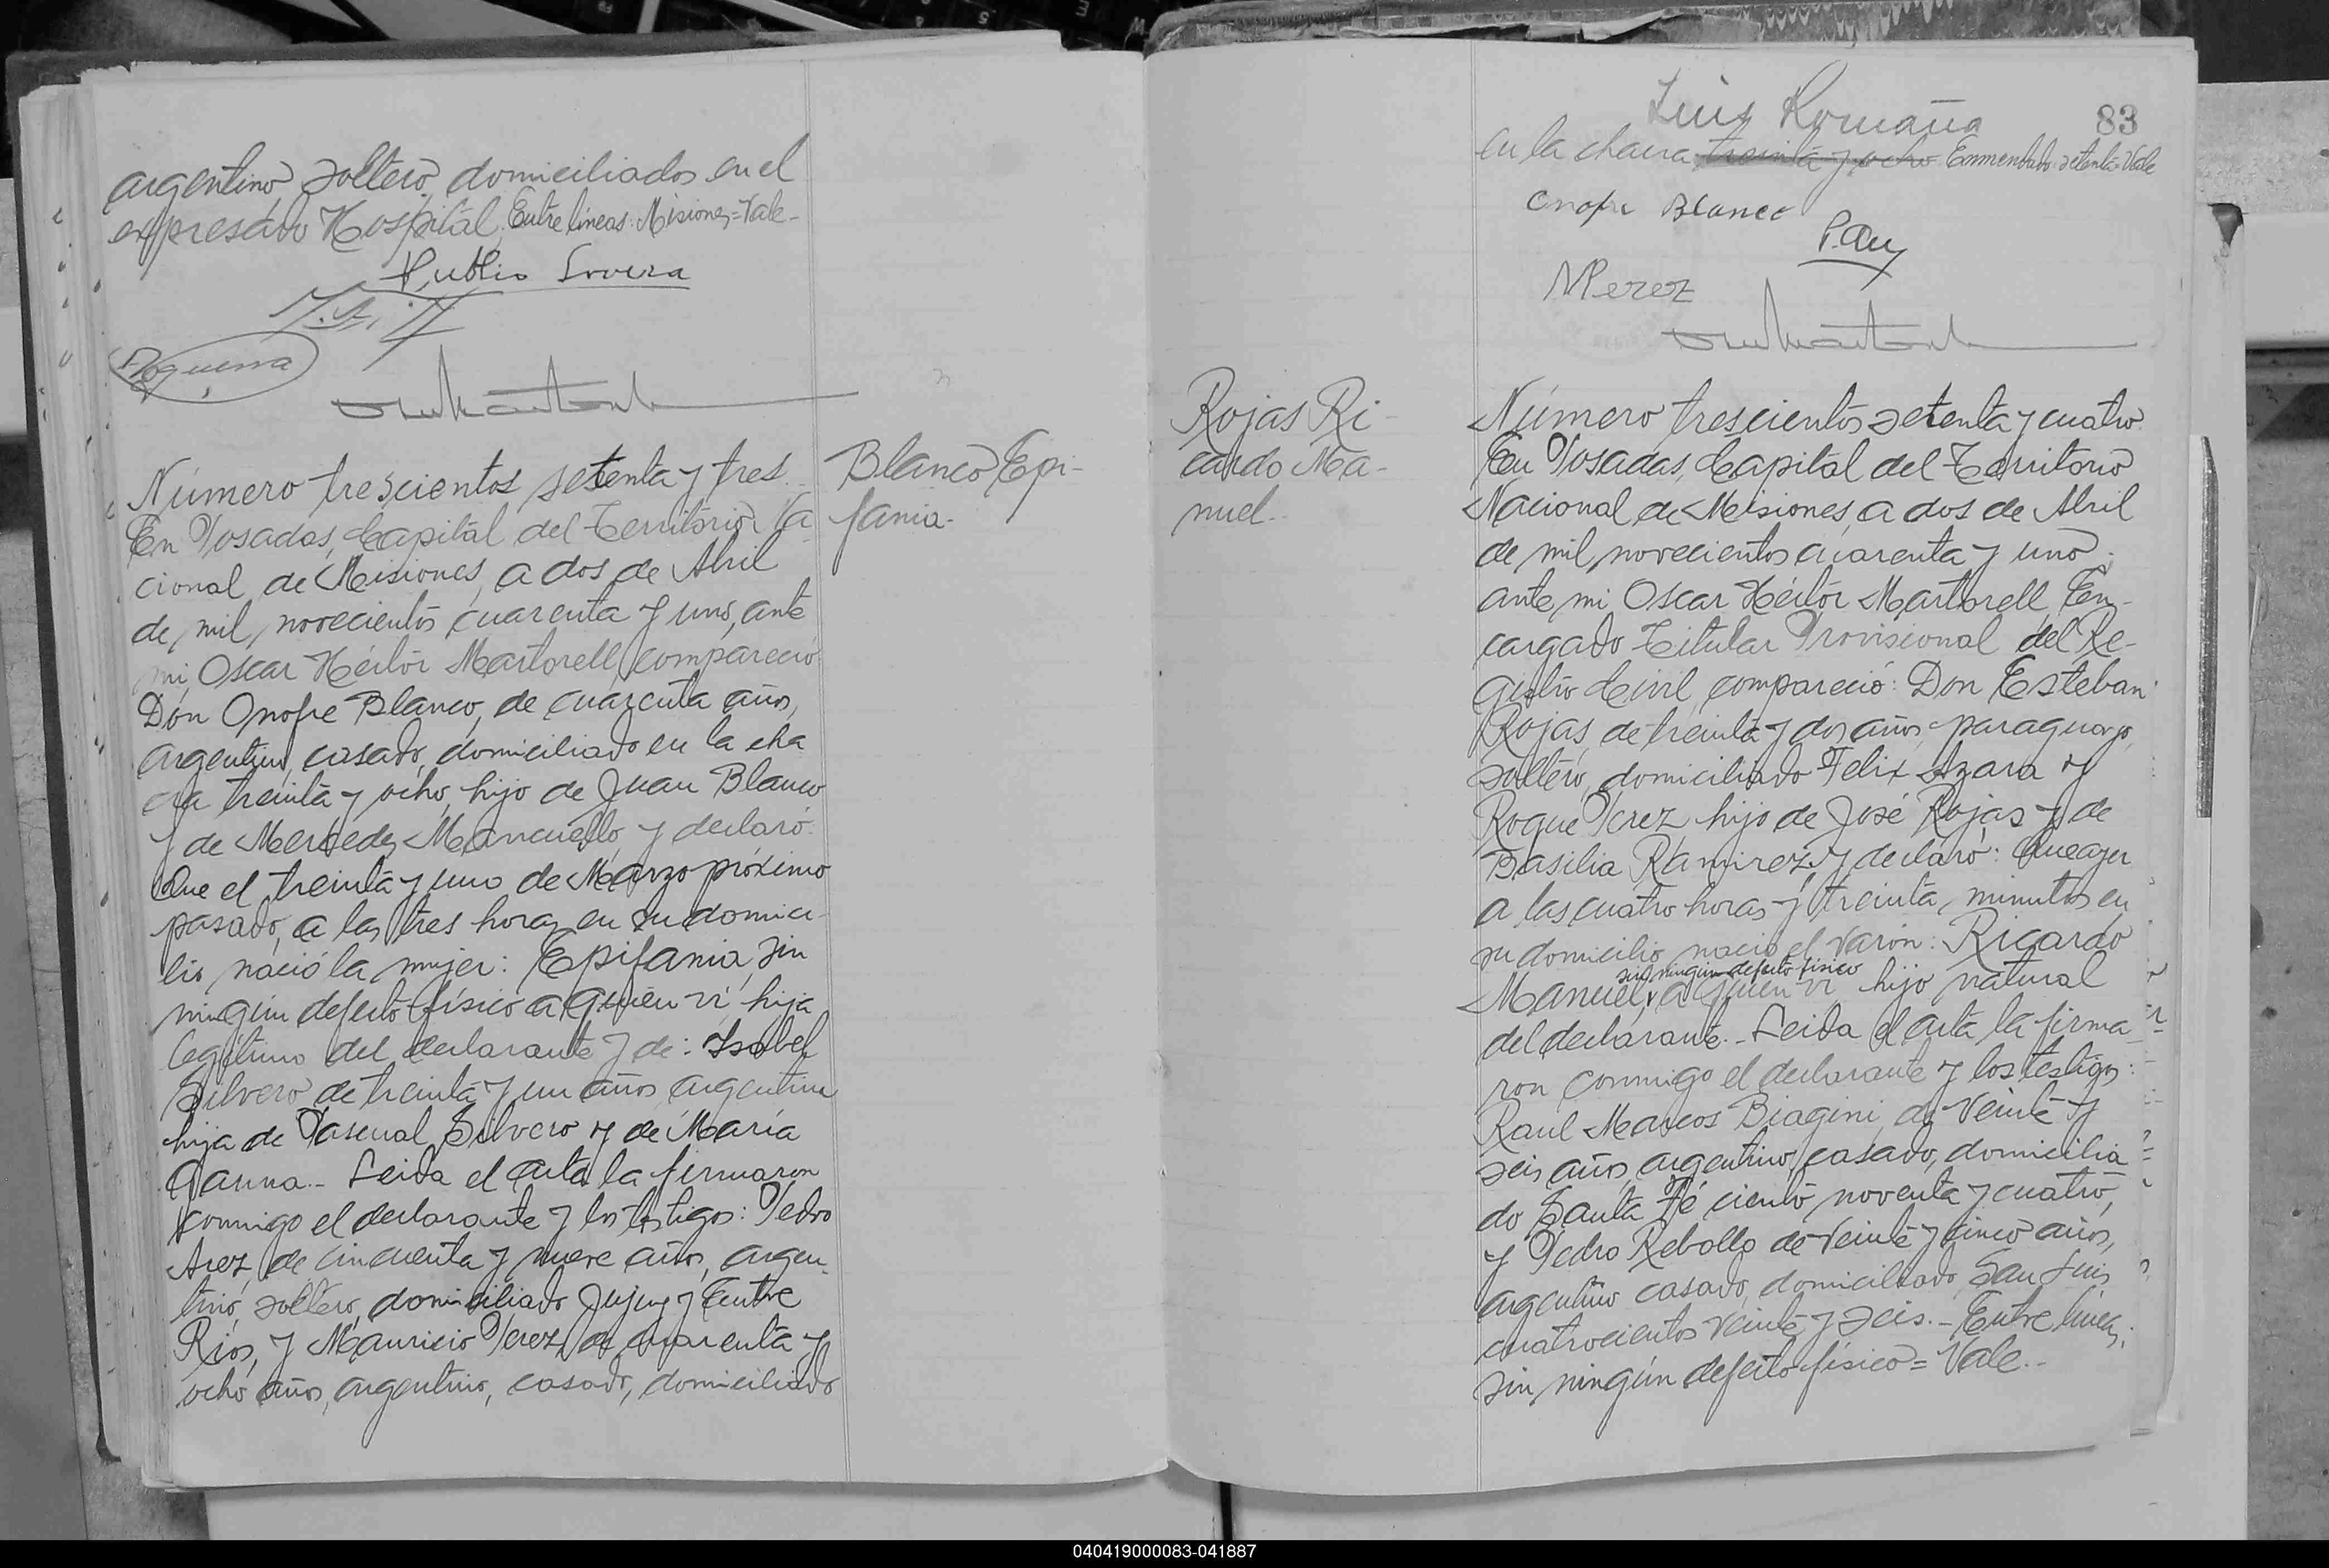 argentino, soltero, domiciliados en el
expresado Hospital. Entre líneas: Misiones=Vale-
Publio Lovera
Noguera
Número trescientos setenta y tres.
Blanco Epi-
fania.
En Posadas, Capital del Territorio Na
cional de Misiones, a dos de Abril
de mil novecientos cuarenta y uno, ante
mi Oscar Héctor Martorell, compareció
Don Onofre Blanco, de cuarenta años,
argentino, casado, domiciliado en la cha
cra treinta y ocho, hijo de Juan Blanco
y de Mercedes Mancuello, y declaró:
Que el treinta y uno de Marzo próximo
pasado, a las tres horas en su domici-
lio nació la mujer: Epifania, sin
ningún defecto físico a quien vi, hija
legítima del declarante y de: Isabel
Silvero de treinta y un años, argentina
hija de Pascual Silvero y de María
Gauna.- Leida el acta la firmaron
conmigo el declarante y los testigos: Pedro
Arez, de cincuenta y nueve años, argen-
tino, soltero, domiciliado Jujuy y Entre
Ríos, y Mauricio Perez, de cuarenta y
ocho años, argentino, casado, domiciliado
Luis Romaña
83
en la chacra treinta y ocho Enmendado: setenta=Vale
Onofre Blanco
MPerez
Rojas Ri-
cardo Ma-
nuel.
Número trescientos setenta y cuatro
En Posadas, Capital del Territorio
Nacional de Misiones, a dos de Abril
de mil novecientos cuarenta y uno,
ante mi Oscar Héctor Martorell, En-
cargado Titular Provisional del Re-
gistro Civil compareció: Don Esteban
Rojas, de treinta y dos años, paraguayo,
soltero, domiciliado Felix Azara y
Roque Perez hijo de José Rojas y de
Basilia Ramirez, y declaró: Que ayer
a las cuatro horas y treinta, minutos en
su domicilio nació el varón: Ricardo
sin ningún defecto físico
Manuel, a quien vi hijo natural
del declarante.- Leida el acta la firma
ron conmigo el declarante y los testigos:
Raul Marcos Biagini, de veinte y
seis años, argentino, casado, domicilia
do Santa Fé ciento noventa y cuatro,
y Pedro Rebollo de veinte y cinco años,
argentino casado, domiciliado San Luis
cuatrocientos veinte y seis.- Entre líneas:
sin ningún defecto físico=Vale.-
040419000083-041887